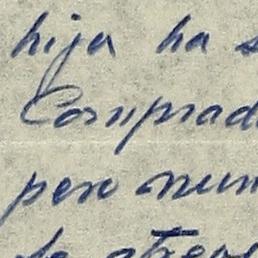 hija ha s
Comprad
pero nun